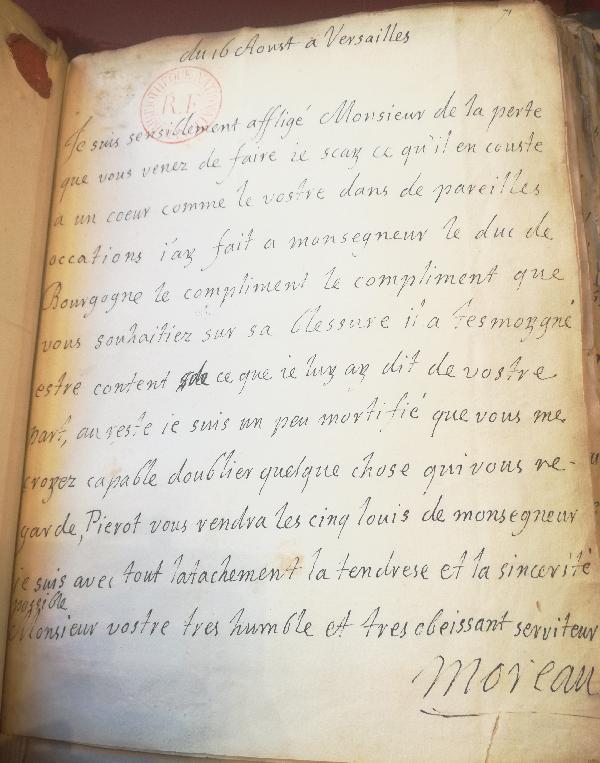 71
du 16 Aoust a Versailles
BIBLIOTHEQUE NATIONALE
R.F.
Je suis sensiblement affligé Monsieur de la perte
que vous venez de faire ie scay ce qu'il en couste
a un coeur comme le vostre dans de pareilles
occations i'ay fait a monsegneur le duc de
Bourgogne le compliment le compliment que
vous souhaitiez sur sa blessure il a tesmoygné
estre content de ce que ie luy ay dit de vostre
part, au reste ie suis un peu mortifié que vous me
croyez capable doublier quelque chose qui vous re-
garde, Pierot vous rendra les cinq louis de monsegneur
ie suis avec tout latachement la tendrese et la sincerité
possible
Monsieur vostre tres humble et tres obeissant serviteur
Moreau